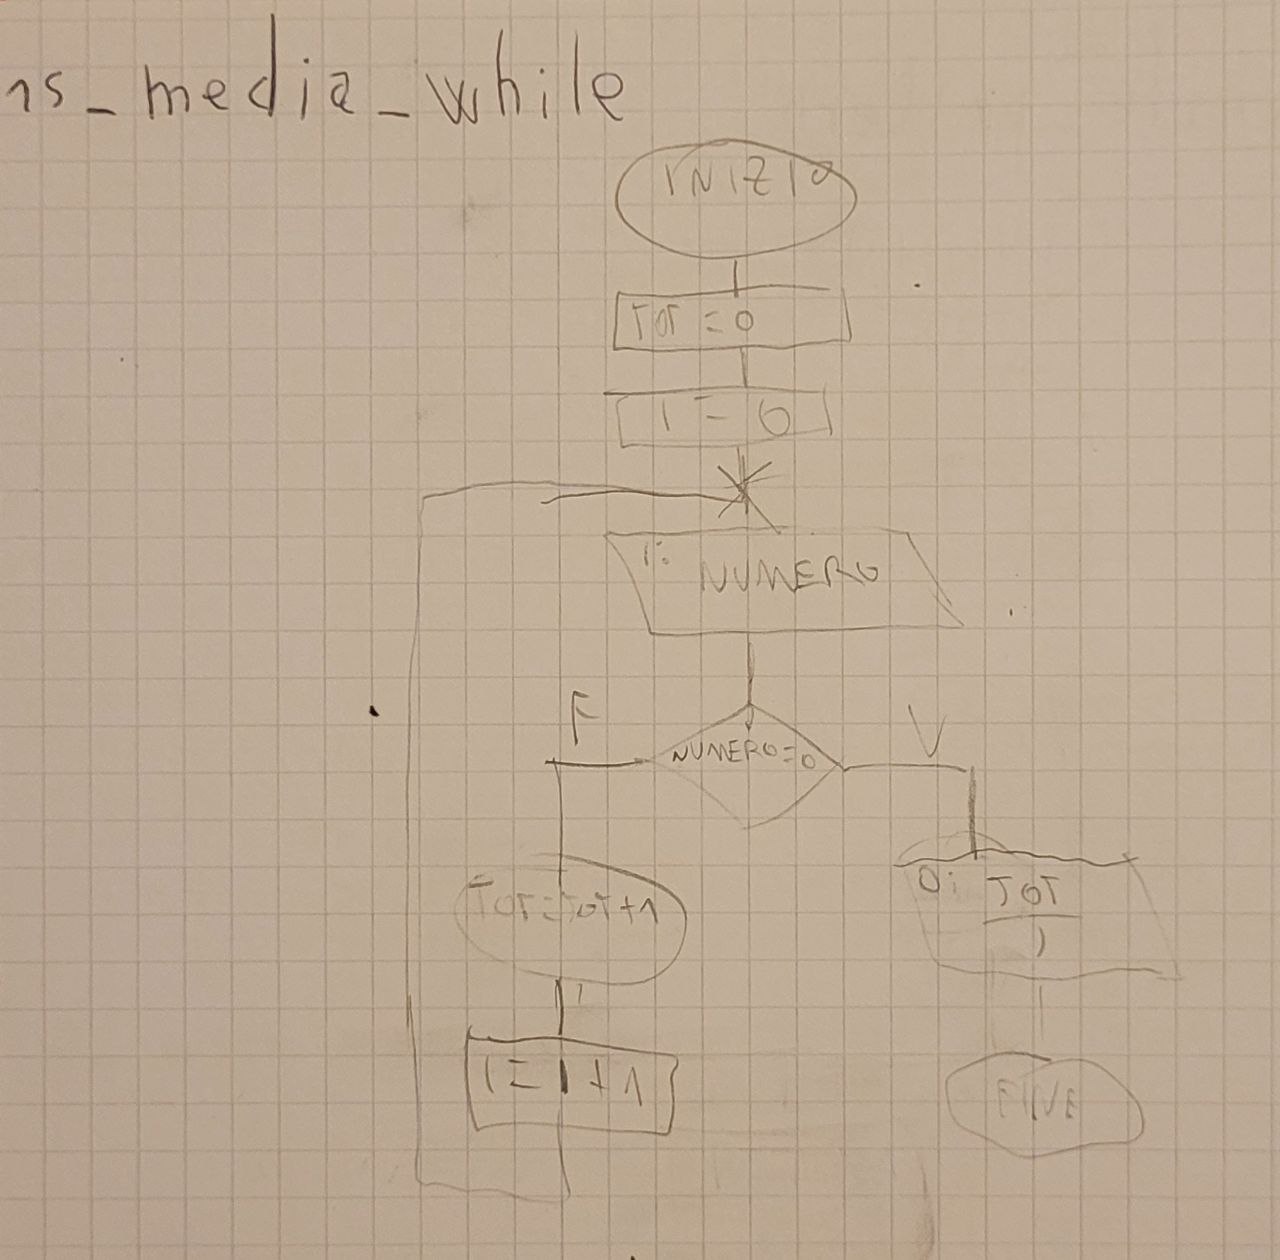 ns_media_while
INIZIO
TOT = 0
I = 0
I: NUMERO
F
V
NUMERO=0
TOT=TOT+1
O: TOT
I
I=I+1
FINE